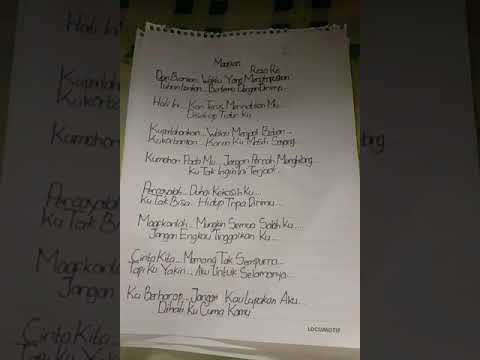 Maafkan
Reza Re
Dan Biarkan.. Waktu Yang Menghapuskan
Tuhan Izinkan.. Bertemu Dengan Dirinya..
Hati Ini... Kan Terus Merindukan Mu..
Disetiap Tidur Ku
Kupertahankan.. Walau Menjadi Beban...
Kukorbankan... Karna Ku Masih Sayang
Kumohon Pada Mu... Jangan Pernah Menghilang...
Ku Tak Ingin Ini Terjadi..
Percayalah... Duhai Kekasih Ku...
Ku Tak Bisa.. Hidup Tanpa Dirimu...
Maafkanlah... Mungkin Semua Salah Ku...
Jangan Engkau Tinggalkan Ku...
Cinta Kita... Memang Tak Sempurna...
Tapi Ku Yakin... Aku Untuk Selamanya...
Ku Berharap... Jangan Kau Lupakan Aku...
Dihati Ku Cuma Kamu
LOCOMOTIF